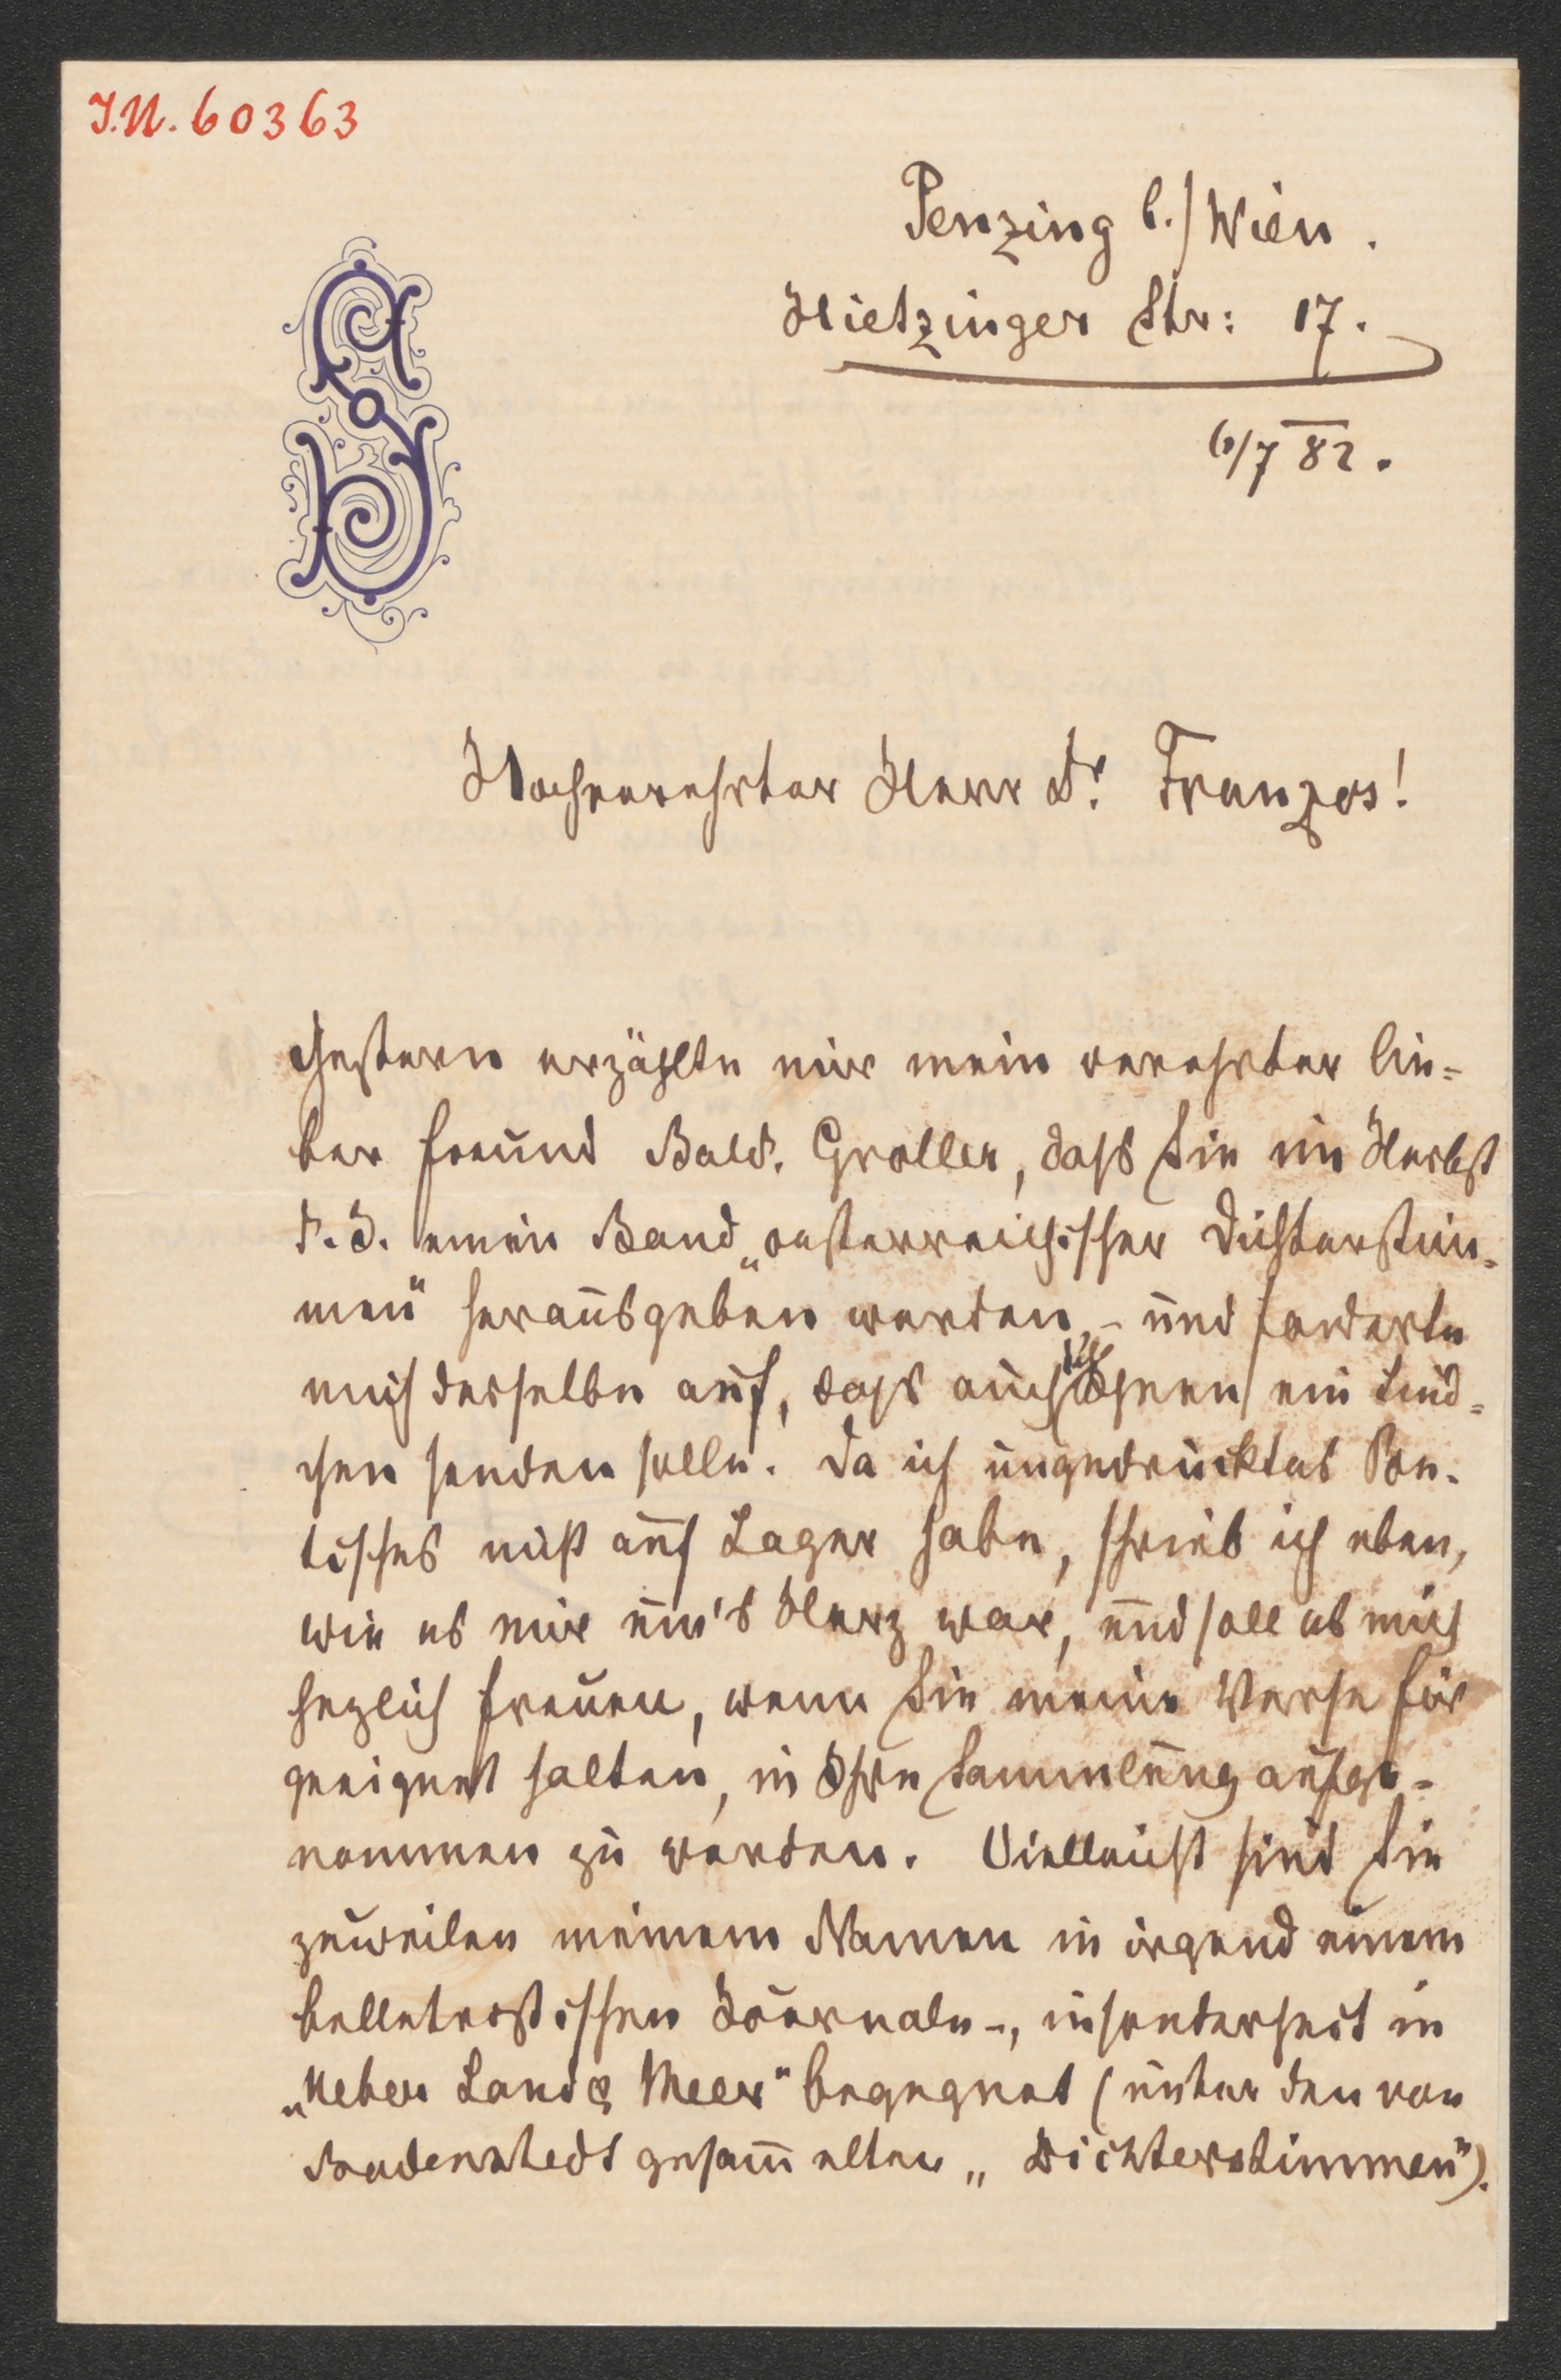 J.N. 60363
Penzing b./Wien.
Hietzinger Str: 17.
6/7 82.
Hochverehrter Herr Dr. Franzos!
Gestern erzählte mir mein verehrter lie-
ber Freund Bald. Groller, daß Sie im Herbst
d. J. einen Band „oesterreichischer Dichterstim-
men" herausgeben werden, - und forderte
mich derselbe auf, daß auch ich Ihnen ein Lied-
chen senden solle. Da ich ungedrucktes Poe-
tisches nicht auf Lager habe, schrieb ich eben,
wie es mir um's Herz war, und soll es mich
herzlich freuen, wenn Sie meine Verse für
geeignet halten, in Ihre Sammlung aufge-
nommen zu werden. Vielleicht sind Sie
zuweilen meinem Namen in irgend einem
belletristischen Journale -, insonderheit in
„Ueber Land & Meer" begegnet (unter den von
Bodenstedt gesammelten „Dichterstimmen").